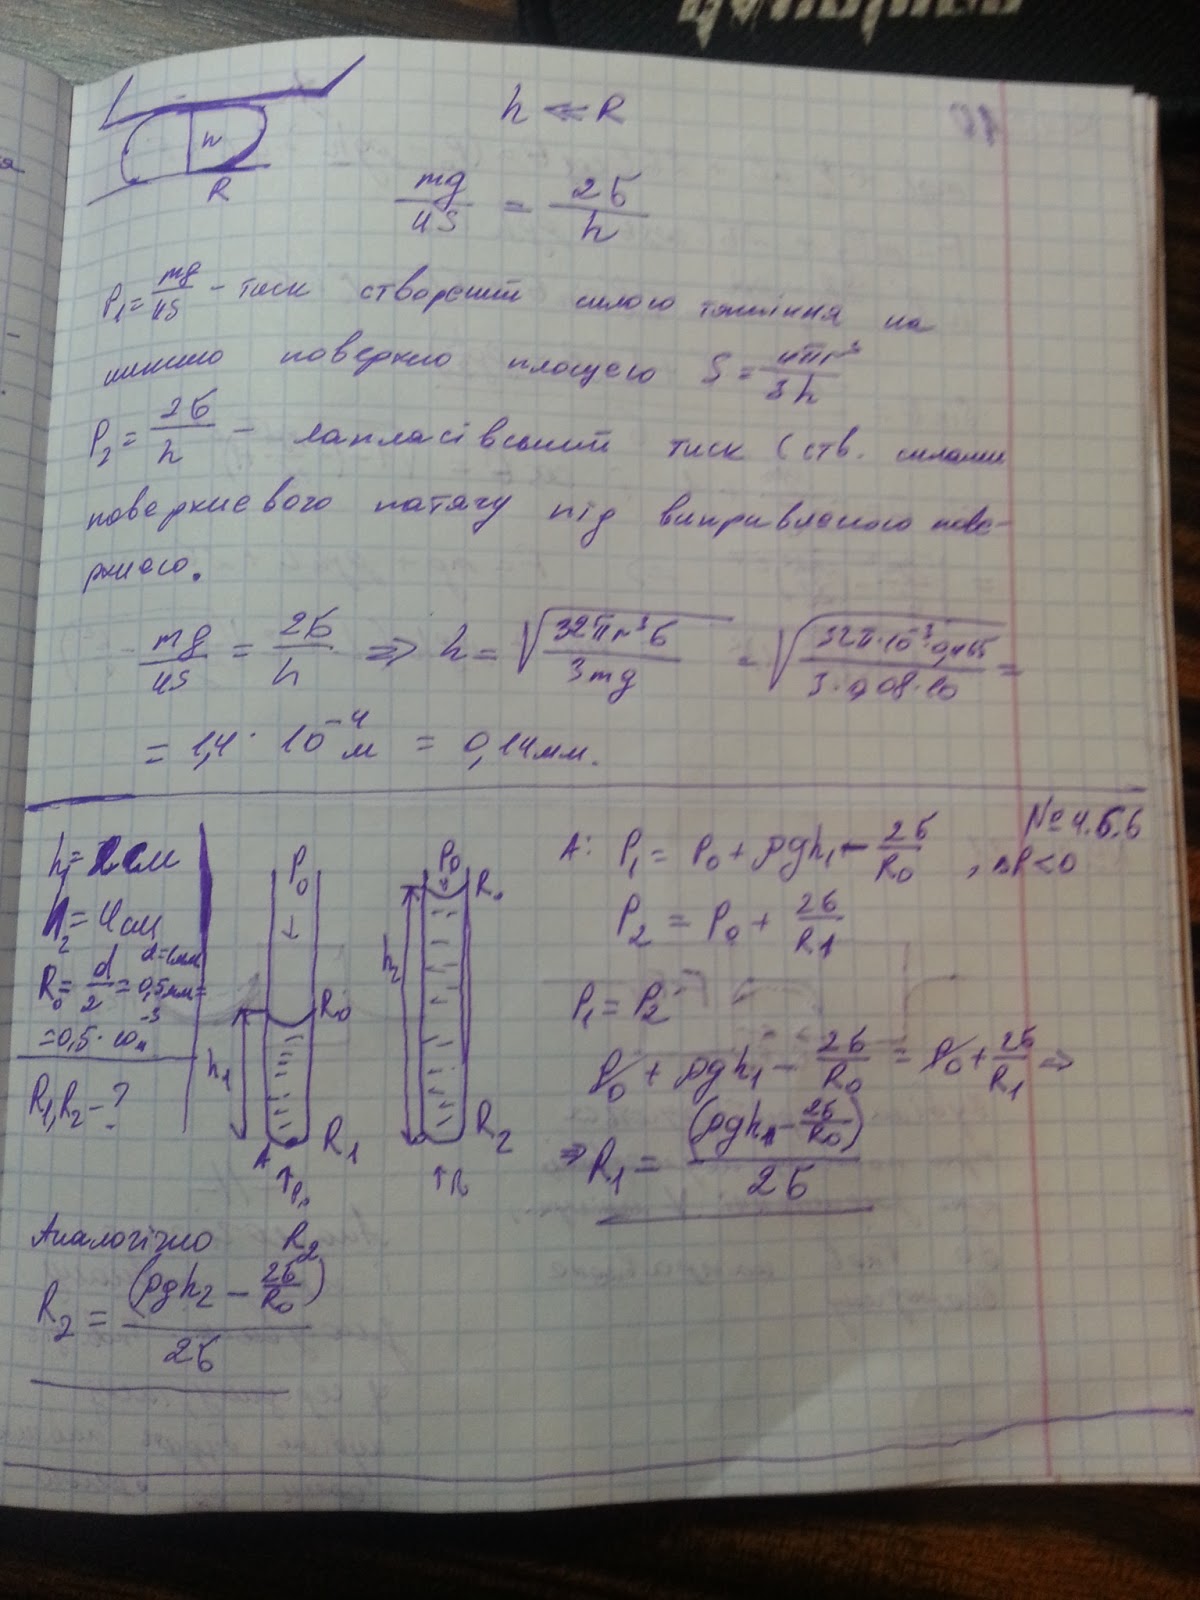 h ≪ R
h
R
mg/4S = 2б/h
P₁ = mg/4S – тиск створений силою тяжіння на
нижню поверхню площею S = 4πr³/3h
P₂ = 2б/h – лапласівський тиск (ств. силами
поверхневого натягу під викривленою пове-
рхнею.
mg/4S = 2б/h ⇒ h = √(32πr³б/3mg) =
= 1,4 · 10⁻⁴ м = 0,14 мм.
№ 4.6.6
h₁ = 2 см
h₂ = 4 см
R₀ = d/2 = 0,5 мм =
d = 1мм
= 0,5 · 10⁻³ м
R₁, R₂ – ?
P₀
R₀
h₁
A
R₁
P₀
P₀
R₀
h₂
R₂
A: P₁ = P₀ + ρgh₁ – 2б/R₀ , ΔP < 0
P₂ = P₀ + 2б/R₁
P₁ = P₂
P₀ + ρgh₁ – 2б/R₀ = P₀ + 2б/R₁ ⇒
⇒ R₁ = (ρgh₁ – 2б/R₀)/2б
Аналогічно R₂
R₂ = (ρgh₂ – 2б/R₀)/2б